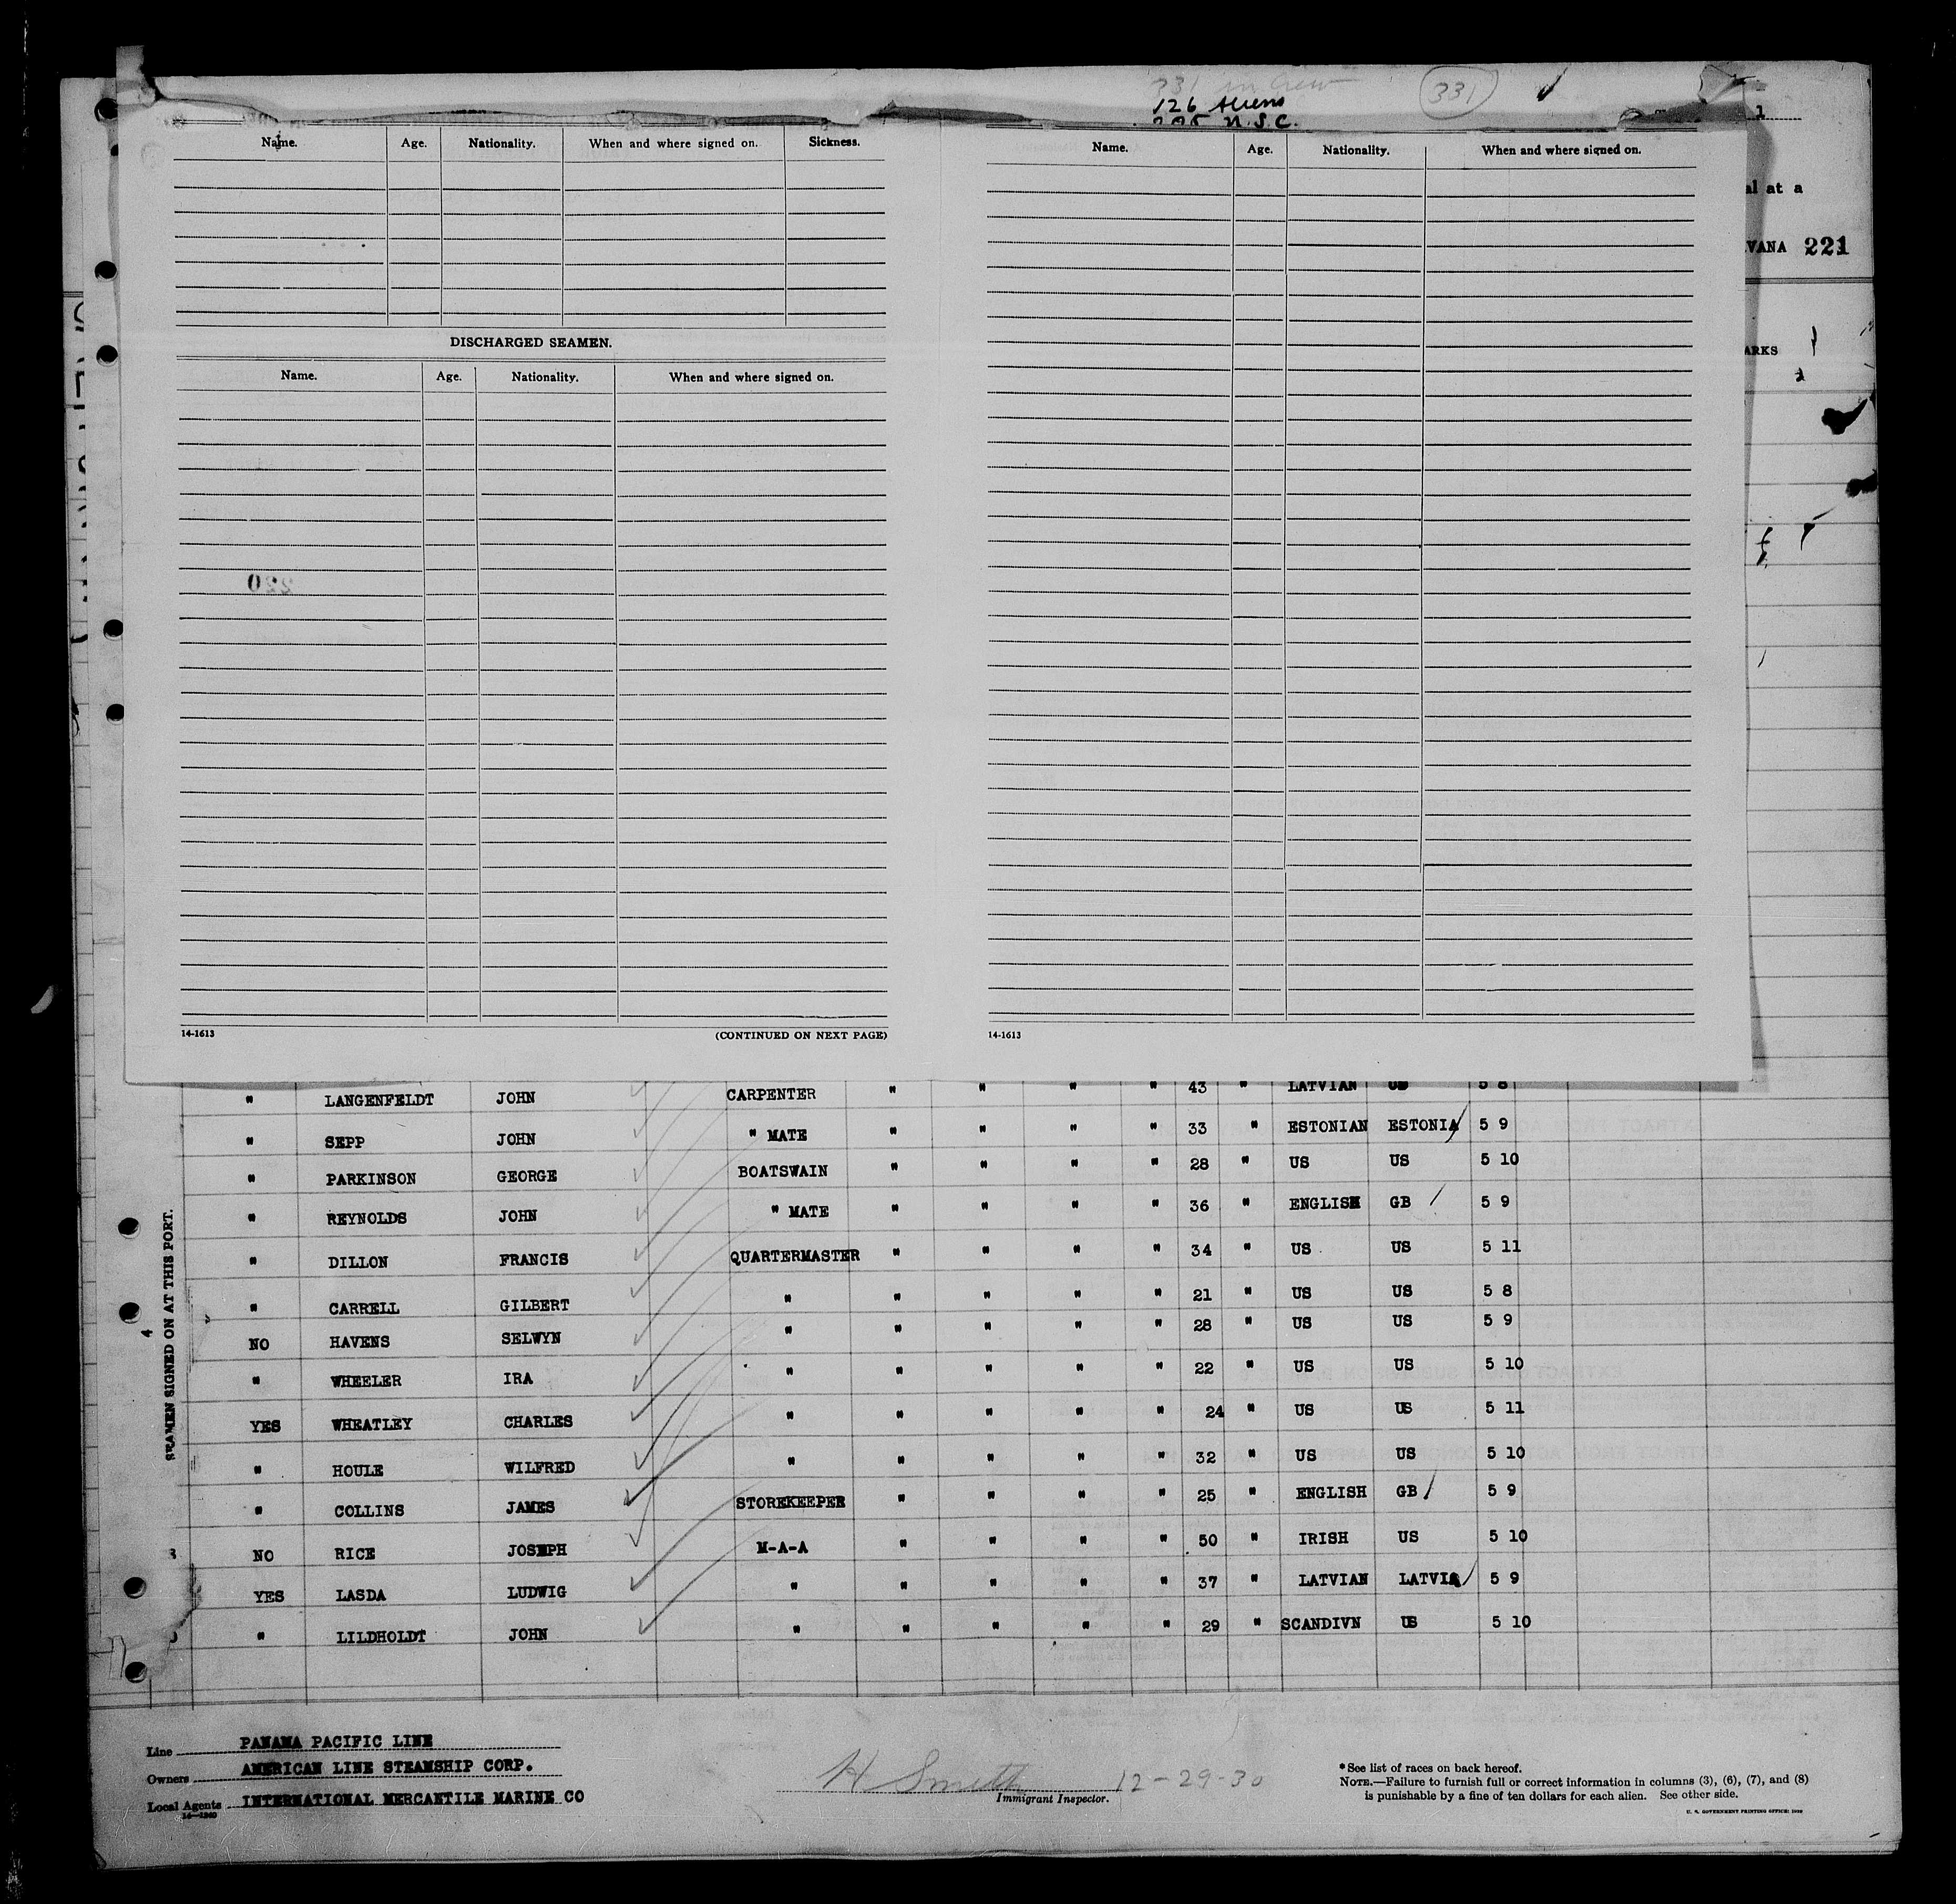 331 in Crew 331
126 Aliens
U.S.C. 1
Name. Age. Nationality. When and where signed on. Sickness.
Name. Age. Nationality. When and where signed on.
al at a
VANA 221
DISCHARGED SEAMEN.
ARKS
Name. Age. Nationality. When and where signed on.
220
14-1613 (CONTINUED ON NEXT PAGE) 14-1613
SEAMEN SIGNED ON AT THIS PORT.
4
" LANGENFELDT JOHN CARPENTER " " " " 43 " LATVIAN US 5 8
" SEPP JOHN " MATE " " " " 33 " ESTONIAN ESTONIA 5 9
" PARKINSON GEORGE BOATSWAIN " " " " 28 " US US 5 10
" REYNOLDS JOHN " MATE " " " " 36 " ENGLISH GB 5 9
" DILLON FRANCIS QUARTERMASTER " " " " 34 " US US 5 11
" CARRELL GILBERT " " " " " 21 " US US 5 8
NO HAVENS SELWYN " " " " " 28 " US US 5 9
" WHEELER IRA " " " " " 22 " US US 5 10
YES WHEATLEY CHARLES " " " " " 24 " US US 5 11
" HOULE WILFRED " " " " " 32 " US US 5 10
" COLLINS JAMES STOREKEEPER " " " " 25 " ENGLISH GB 5 9
NO RICE JOSEPH M-A-A " " " " 50 " IRISH US 5 10
YES LASDA LUDWIG " " " " " 37 " LATVIAN LATVIA 5 9
" LILDHOLDT JOHN " " " " " 29 " SCANDIVN US 5 10
Line PANAMA PACIFIC LINE
Owners AMERICAN LINE STEAMSHIP CORP.
Local Agents INTERNATIONAL MERCANTILE MARINE CO
H Smith 12-29-30
Immigrant Inspector.
*See list of races on back hereof.
NOTE.—Failure to furnish full or correct information in columns (3), (6), (7), and (8)
is punishable by a fine of ten dollars for each alien. See other side.
U. S. GOVERNMENT PRINTING OFFICE: